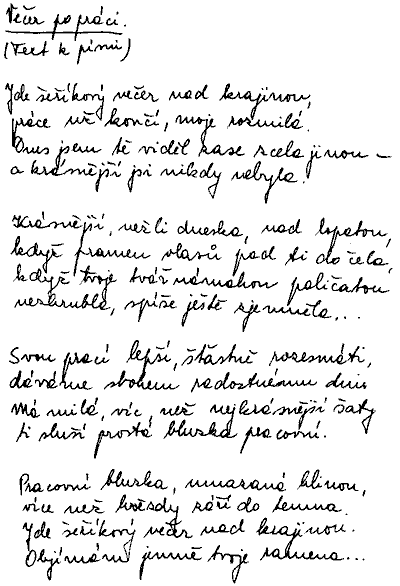 Večer po práci.
(Text k písni)
Jde šeříkový večer nad krajinou,
práce už končí, moje rozmilá.
Dnes jsem tě viděl zase zcela jinou –
a krásnější jsi nikdy nebyla.
Krásnější, nežli dneska, nad lopatou,
když pramen vlasů pad ti do čela,
když tvoje tvář námahou poličatou
nezhrubla, spíše ještě zjemněla...
Svou prací lepší, šťastně rozesmáti,
dáváme sbohem radostnému dni.
Má milá, víc, než nejkrásnější šaty
ti sluší prostá bluzka pracovní.
Pracovní bluzka, umazaná hlinou,
více než hvězdy září do temna.
Jde šeříkový večer nad krajinou.
Objímám jemně tvoje ramena...